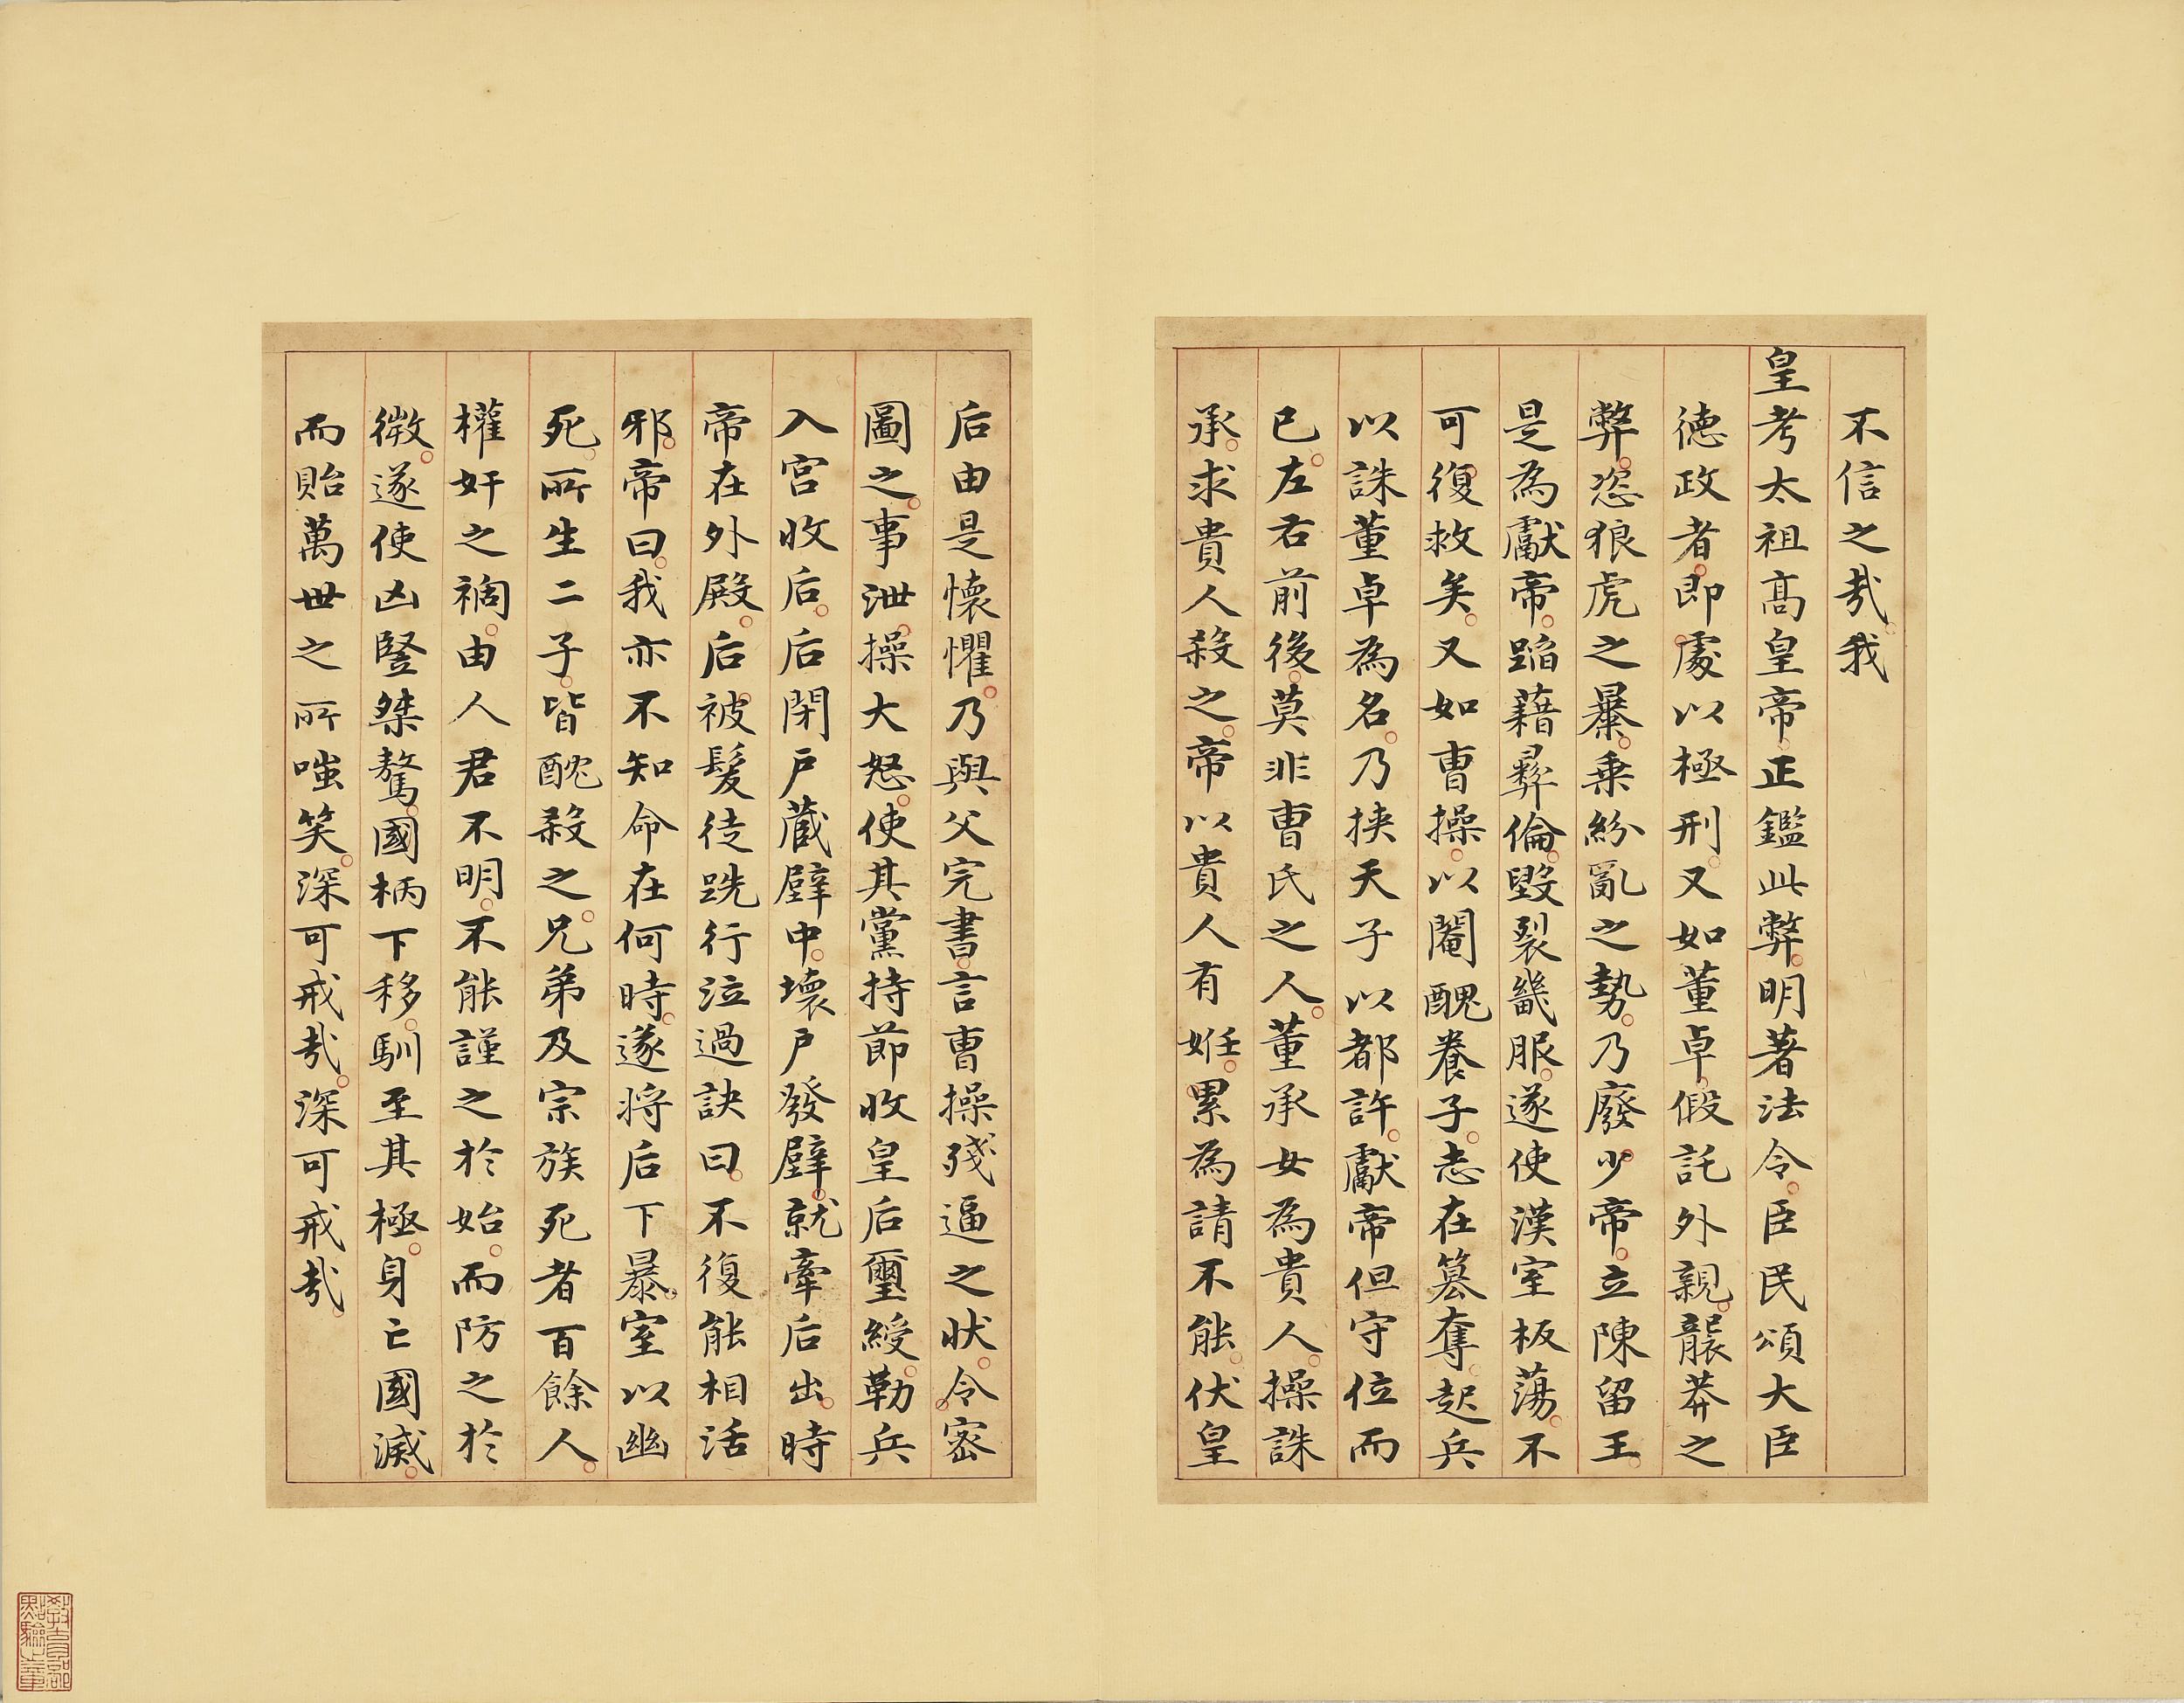 不信之哉我
皇考太祖高皇帝正鑑此弊明著法令臣民頌大臣
德政者即處以極刑又如董卓假託外親襲莽之
弊恣狼虎之暴乘紛亂之勢乃廢少帝立陳留王
是為獻帝蹈藉彝倫毀裂畿服遂使漢室板蕩不
可復救矣又如曹操以閹醜養子志在簒奪起兵
以誅董卓為名乃挾天子以都許獻帝但守位而
已左右前後莫非曹氏之人董承女為貴人操誅
承求貴人殺之帝以貴人有姙累為請不能伏皇
后由是懷懼乃與父完書言曹操殘逼之狀令密
圖之事泄操大怒使其黨持節收皇后璽綬勒兵
入宮收后后閉戶藏壁中壞戶發壁就牽后出時
帝在外殿后被髮徒跣行泣過訣曰不復能相活
邪帝曰我亦不知命在何時遂將后下暴室以幽
死所生二子皆酖殺之兄弟及宗族死者百餘人
權奸之禍由人君不明不能謹之於始而防之於
微遂使凶豎桀驁國柄下移馴至其極身亡國滅
而貽萬世之所嗤笑深可戒哉深可戒哉
教育部
點驗之章